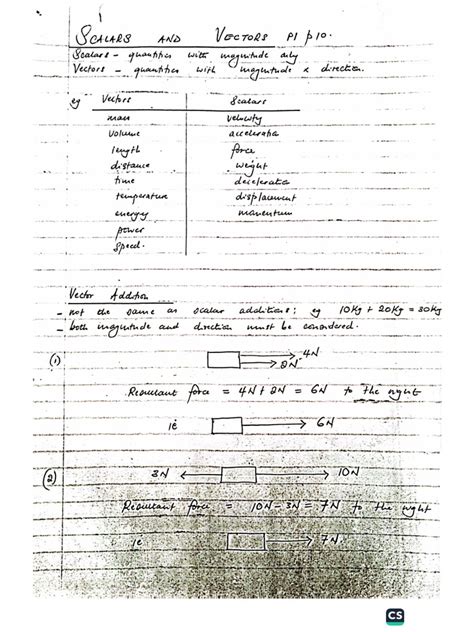 SCALARS AND VECTORS P1 p10.
Scalars - quantities with magnitude only
Vectors - quantities with magnitude & direction.
eg Vectors Scalars
mass velocity
volume acceleration
length force
distance weight
time deceleration
temperature displacement
energy momentum
power
speed.
Vector Addition
- not the same as scalar additions; eg 10Kg + 20Kg = 30Kg
- both magnitude and direction must be considered.
(1) 4N
2N
Resultant force = 4N + 2N = 6N to the right
ie 6N
(2) 3N 10N
Resultant force = 10N - 3N = 7N to the right
ie 7N.
CS